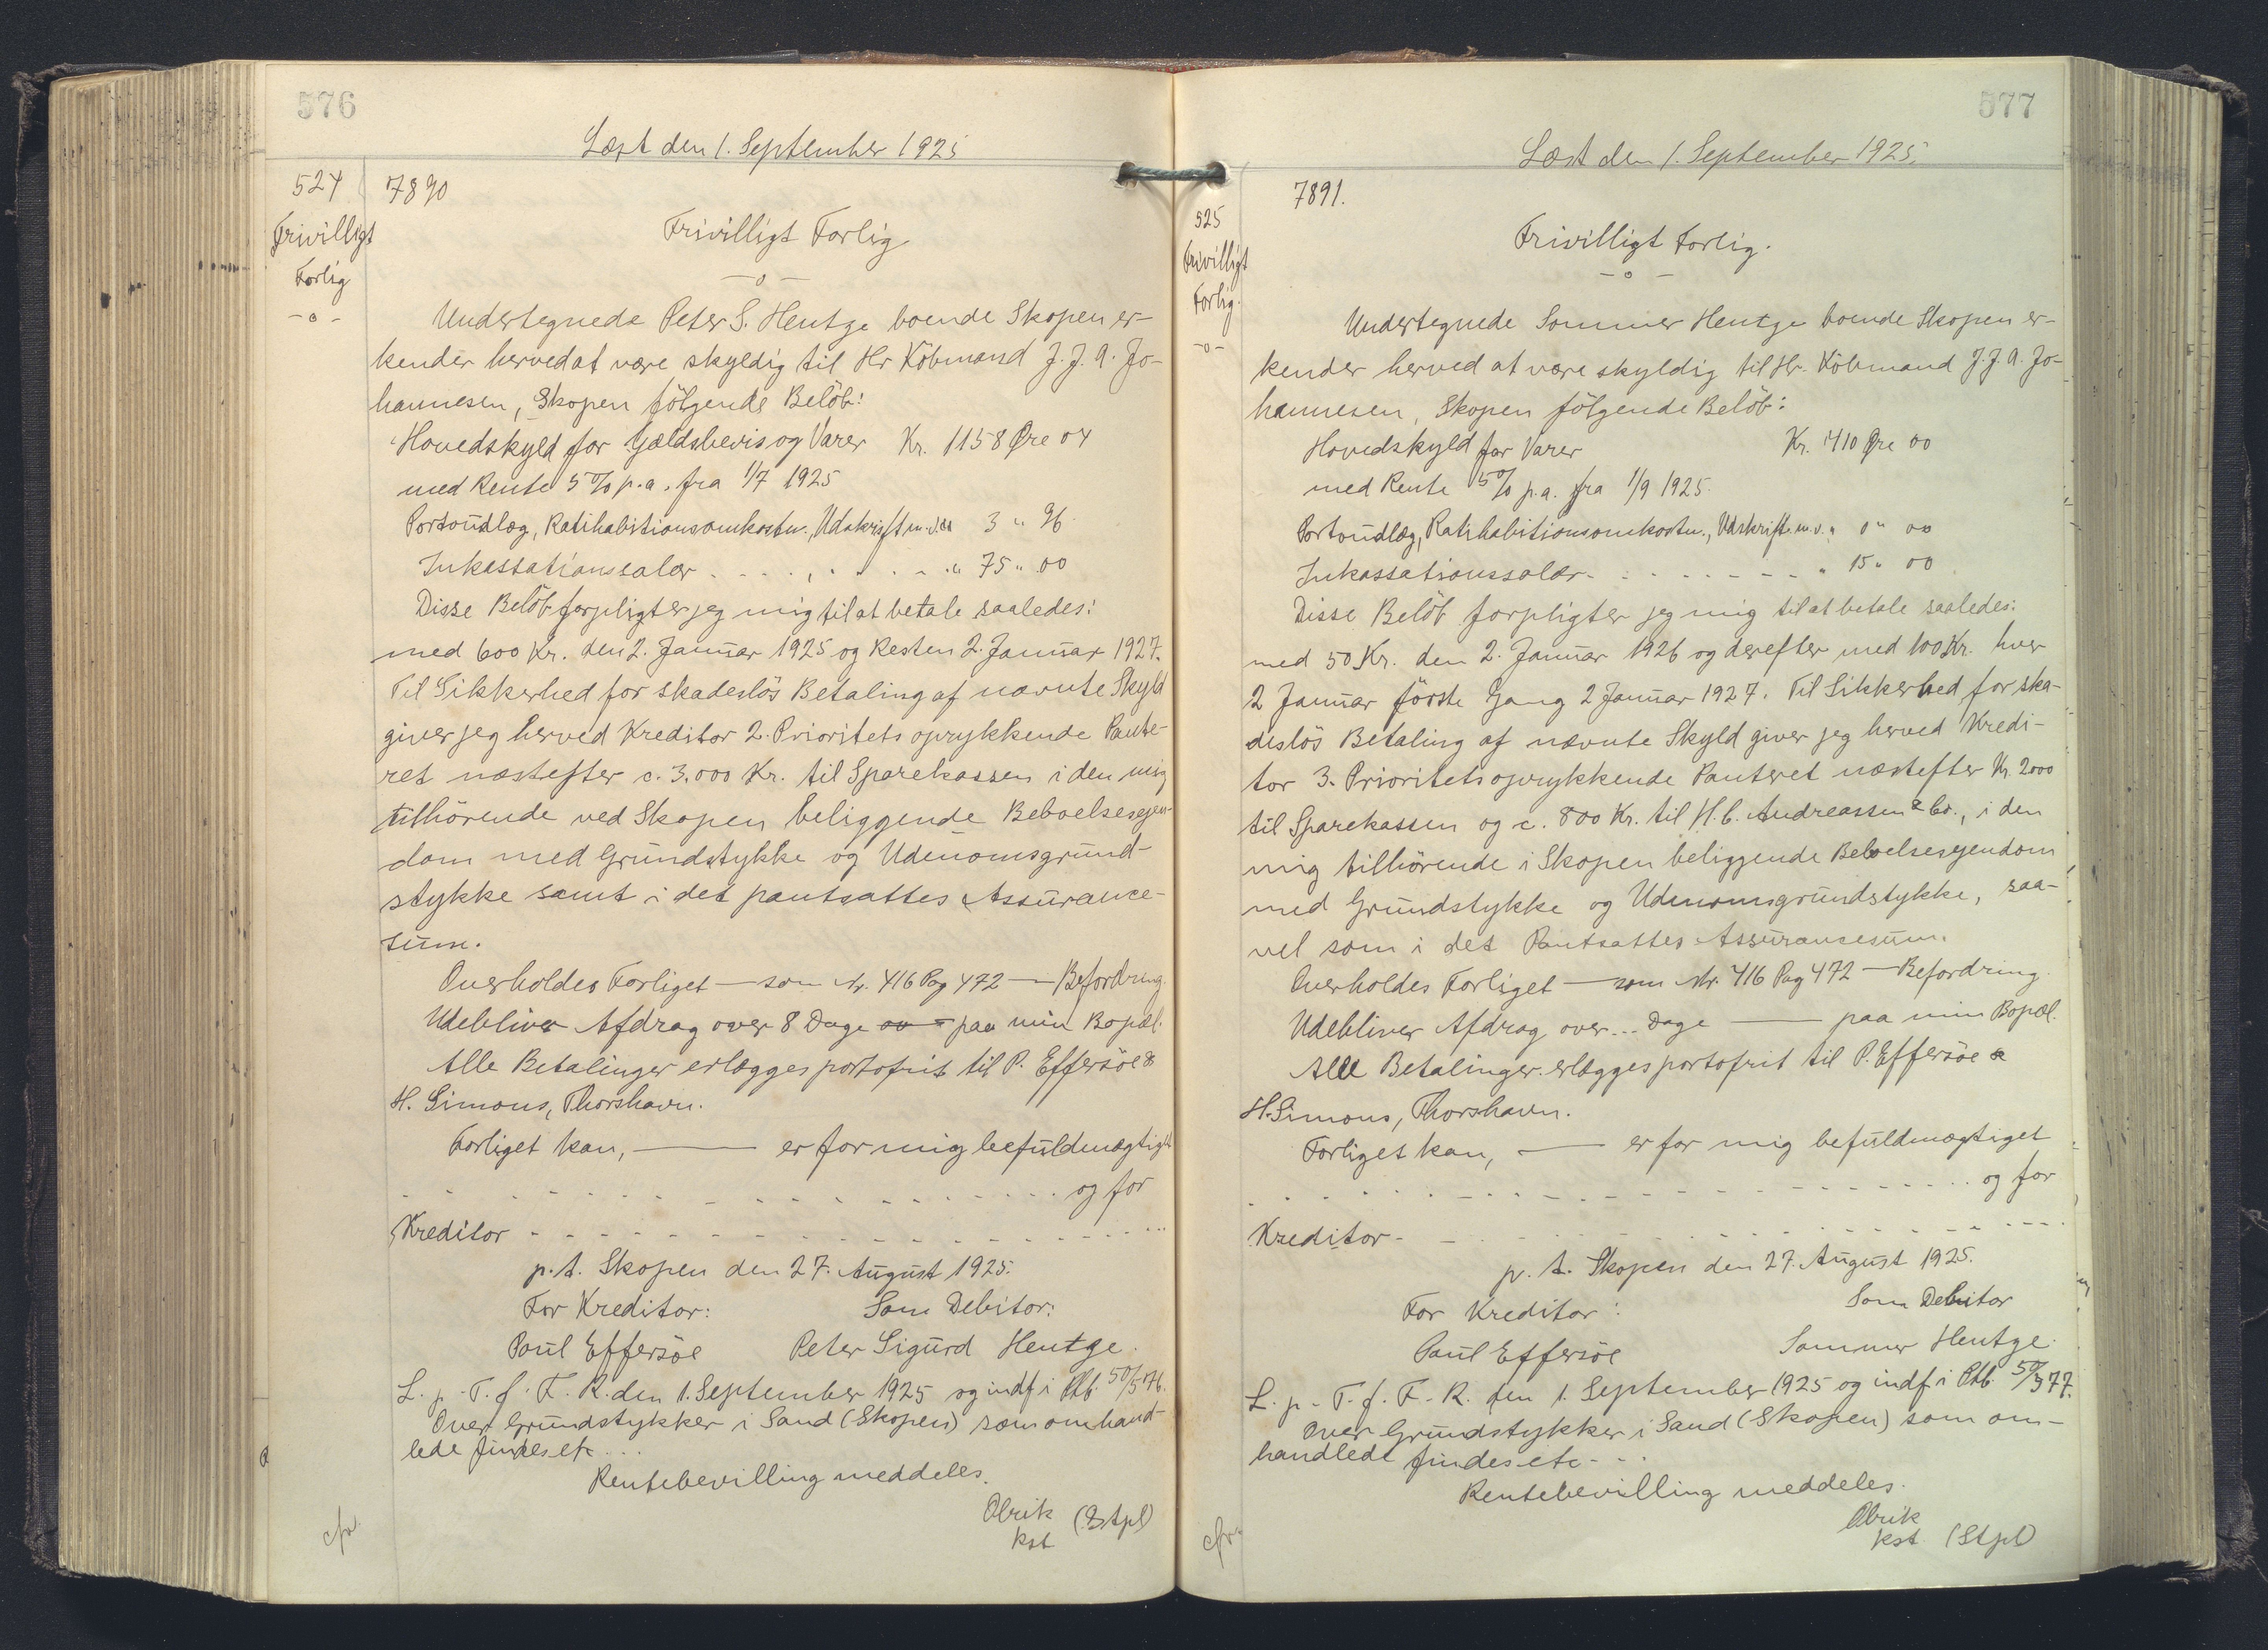 576
Læst den 1. September 1925
524
Frivilligt
Forlig
-o-
7890
Frivilligt Forlig
-o-
Undertegnede Peter S. Hentze boende Skopen er-
kender herved at være skyldig til Hr Köbmand J. J. A. Jo-
hannesen, Skopen fölgende Belöb:
Hovedskyld for Gældsbevis og Varer Kr. 1158 Øre 04
med Rente 5 % p.a. fra 1/7 1925
Portoudlæg, Ratihabitionsomkostn., Udskrift m.v. " 3 " 96
Inkassationssalær . . . . . . . . . " 75 " 00
Disse Belöb forpligter jeg mig til at betale saaledes:
med 600 Kr. den 2. Januar 1925 og Resten 2. Januar 1927.
Til Sikkerhed for skadeslös Betaling af nævnte Skyld
giver jeg herved Kreditor 2. Prioritets oprykkende Pante-
ret næstefter c. 3.000 Kr. til Sparekassen i den mig
tilhörende ved Skopen beliggende Beboelsesejen-
dom med Grundstykke og Udenomsgrund-
stykke samt i det pantsattes Assurance-
sum.
Overholdes Forliget — som Nr. 416 Pag 472 — Befordring.
Udebliver Afdrag over 8 Dage — paa min Bopæl.
Alle Betalinger erlægges portofrit til P. Effersöe &
H. Simons, Thorshavn.
Forliget kan, — er for mig befuldmægtiget
- - - - - - - - - - - - - - - - og for
Kreditor - - - - - - - - - - - - - - - -
p.t. Skopen den 27. August 1925.
For Kreditor: Som Debitor:
Poul Effersöe Peter Sigurd Hentze.
L. p. T. f. F. R. den 1. September 1925 og indf. i Ptb. 50/576.
Over Grundstykker i Sand (Skopen) som omhand-
lede findes etc . . .
Rentebevilling meddeles.
Olrik (Stpl)
kst
cfr.
577
Læst den 1. September 1925.
525
Frivilligt
Forlig.
-o-
7891.
Frivilligt Forlig.
-o-
Undertegnede Sommer Hentze boende Skopen er-
kender herved at være skyldig til Hr. Köbmand J. J. A. Jo-
hannesen, Skopen fölgende Belöb:
Hovedskyld for Varer Kr. 410 Øre 00
med Rente 5 % p.a. fra 1/9 1925.
Portoudlæg, Ratihabitionsomkostn., Udskrift m.v. " 0 " 00
Inkassationssalær - - - - - - - - " 15 " 00
Disse Belöb forpligter jeg mig til at betale saaledes:
med 50 Kr. den 2. Januar 1926 og derefter med 100 Kr. hver
2 Januar förste Gang 2 Januar 1927. Til Sikkerhed for ska-
deslös Betaling af nævnte Skyld giver jeg herved Kredi-
tor 3. Prioritets oprykkende Panteret næstefter Kr. 2000
til Sparekassen og c. 800 Kr. til H. C. Andreassen & Co., i den
mig tilhörende i Skopen beliggende Beboelsesejendom
med Grundstykke og Udenomsgrundstykke, saa-
vel som i det Pantsattes Assurancesum.
Overholdes Forliget — som Nr. 416 Pag 472 — Befordring.
Udebliver Afdrag over ... Dage — paa min Bopæl.
Alle Betalinger erlægges portofrit til P. Effersöe &
H. Simons, Thorshavn.
Forliget kan, — er for mig befuldmægtiget
- - - - - - - - - - - - - - - - og for
Kreditor - - - - - - - - - - - - - - - -
p. t. Skopen den 27. August 1925.
For Kreditor: Som Debitor
Poul Effersöe Sommer Hentze.
L. p. T. f. F. R. den 1. September 1925 og indf. i Ptb. 50/577.
Over Grundstykker i Sand (Skopen) som om-
handlede findes etc - . .
Rentebevilling meddeles.
Olrik
kst (Stpl)
cfr.